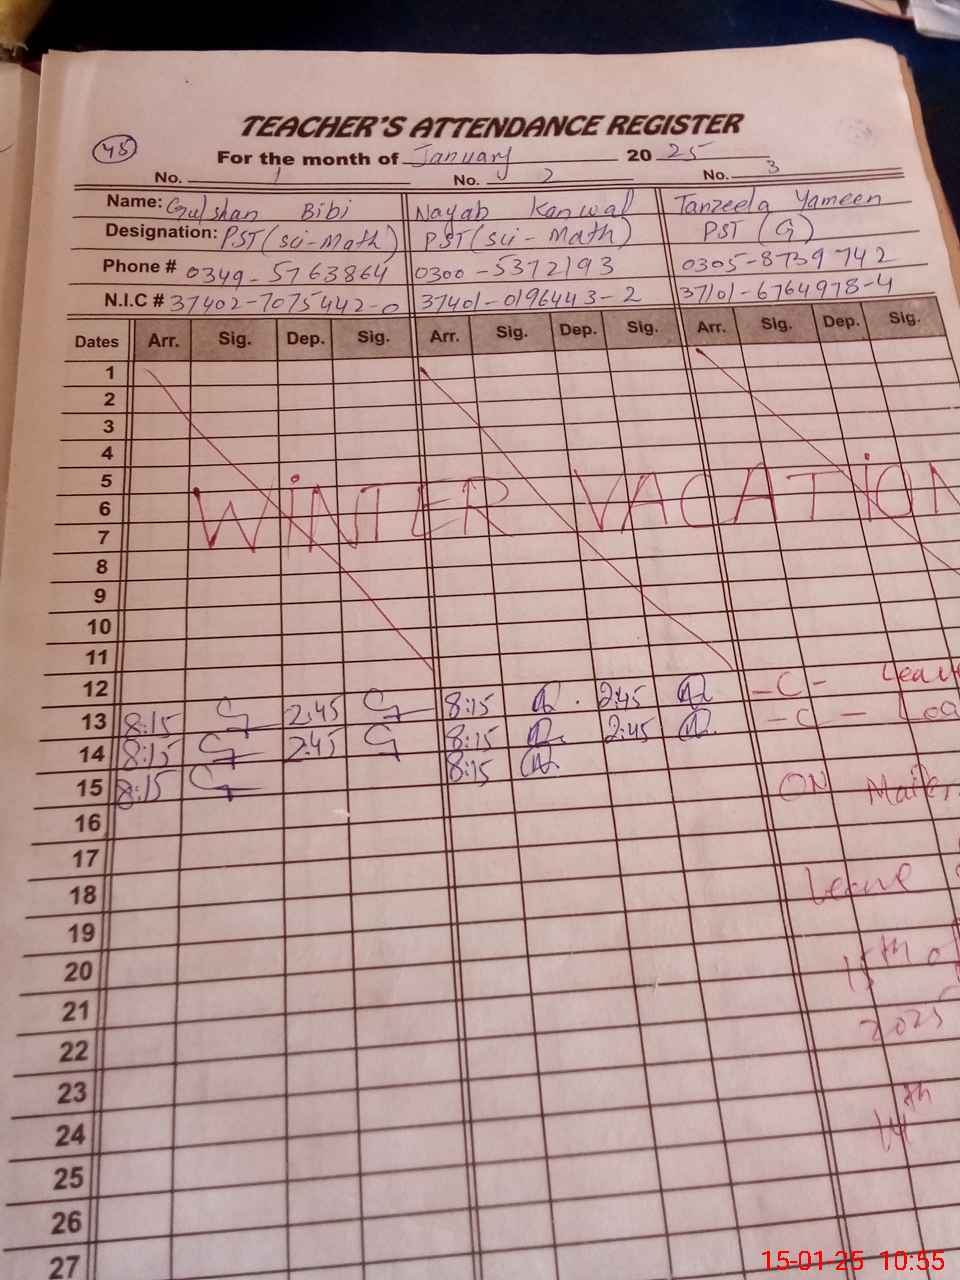 TEACHER'S ATTENDANCE REGISTER
48
For the month of January 2025
No. 1 No. 2 No. 3
Name: Gulshan Bibi Nayab Kanwal Tanzeela Yameen
Designation: PST (sci-Math) PST (sci-Math) PST (G)
Phone # 0349-5763864 0300-5372193 0305-8739742
N.I.C # 37402-7075442-0 37401-0196443-2 37101-6764978-4
Dates Arr. Sig. Dep. Sig. Arr. Sig. Dep. Sig. Arr. Sig. Dep. Sig.
1
2
3
4
5
6
7
WINTER VACATION
8
9
10
11
12
13 8:15 2:45 8:15 2:45 -C- Leave
14 8:15 2:45 8:15 2:45 -C-
15 8:15 8:15 ON
16
17
18 Leave
19
20 15th of
21
22 2025
23
24 14th
25
26
27
15-01-25 10:55